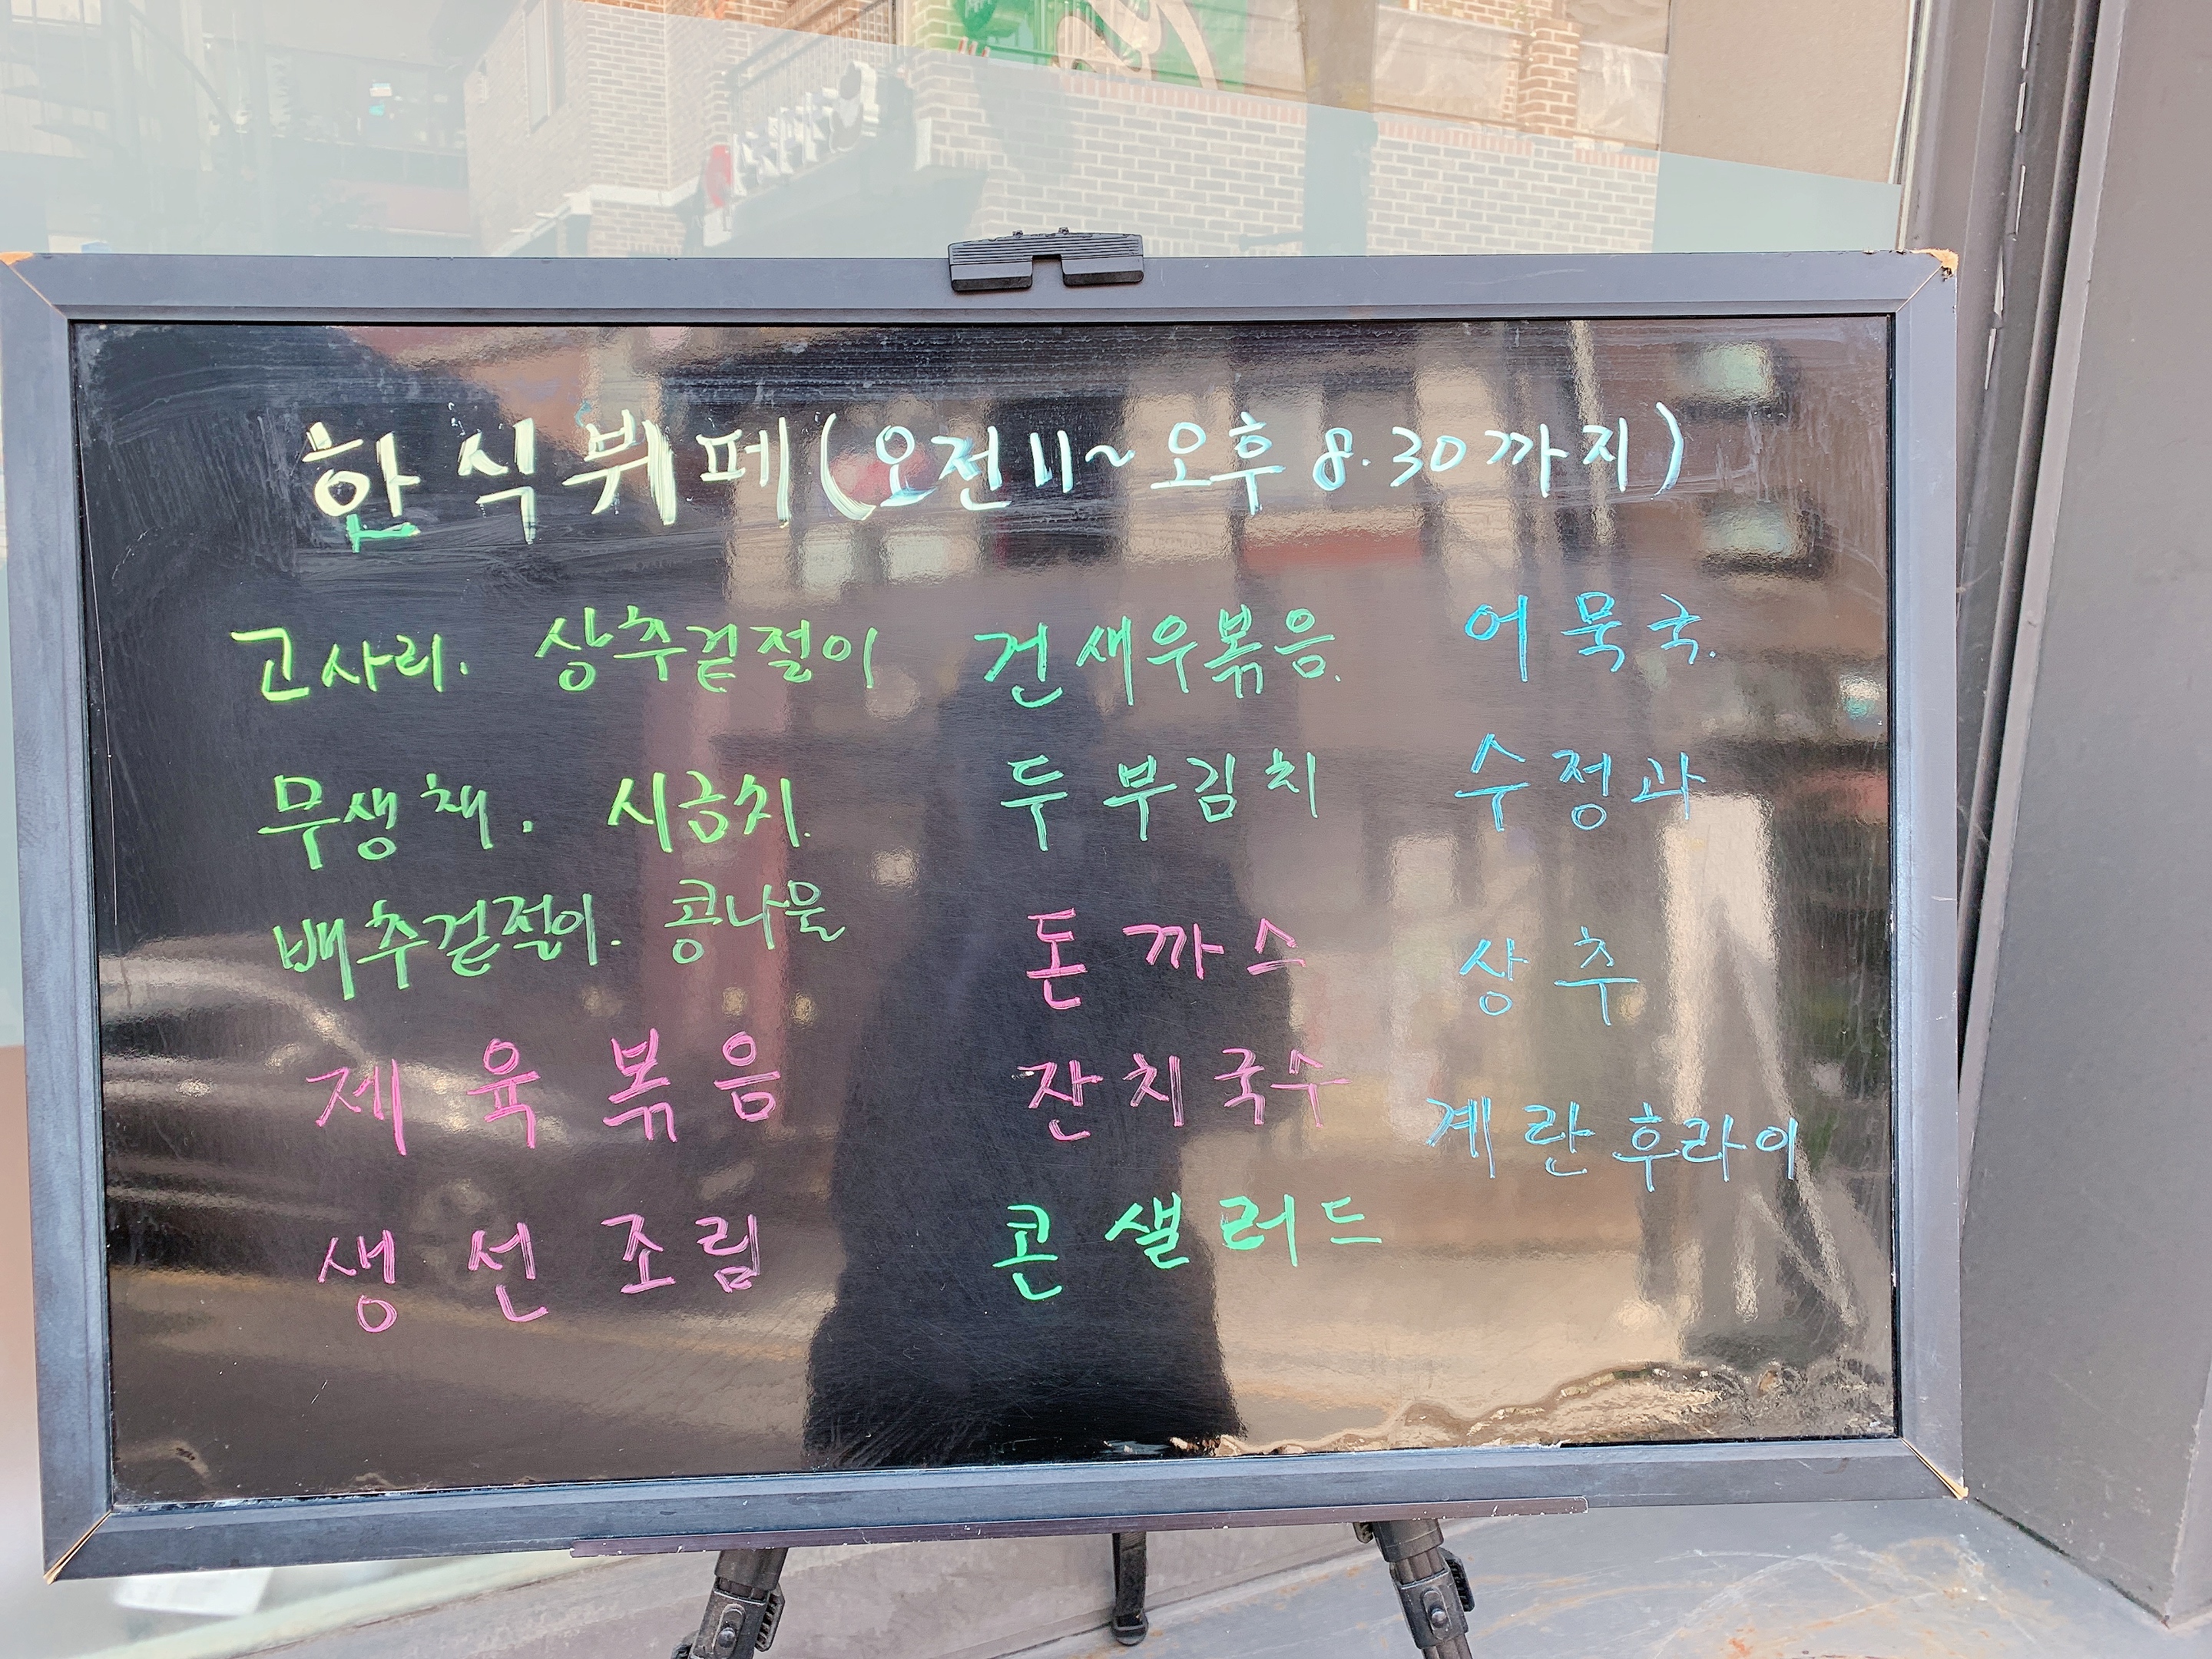 한식뷔페(오전11~오후 8.30까지)
고사리. 상추겉절이
무생채. 시금치.
배추겉절이. 콩나물
제육볶음
생선조림
건새우볶음.
두부김치
돈까스
잔치국수
콘샐러드
어묵국.
수정과
상추
계란후라이